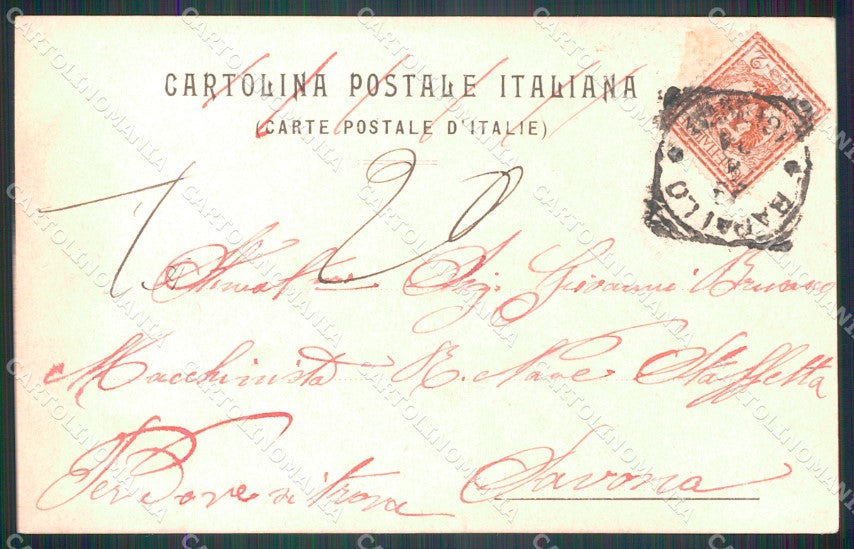 CARTOLINA POSTALE ITALIANA
(CARTE POSTALE D'ITALIE)
RAPALLO
T. 20
Sig. Giovanni Bruno
Macchinista R. Nave Staffetta
Per Dove si trova Savona
CARTOLINOMANIA